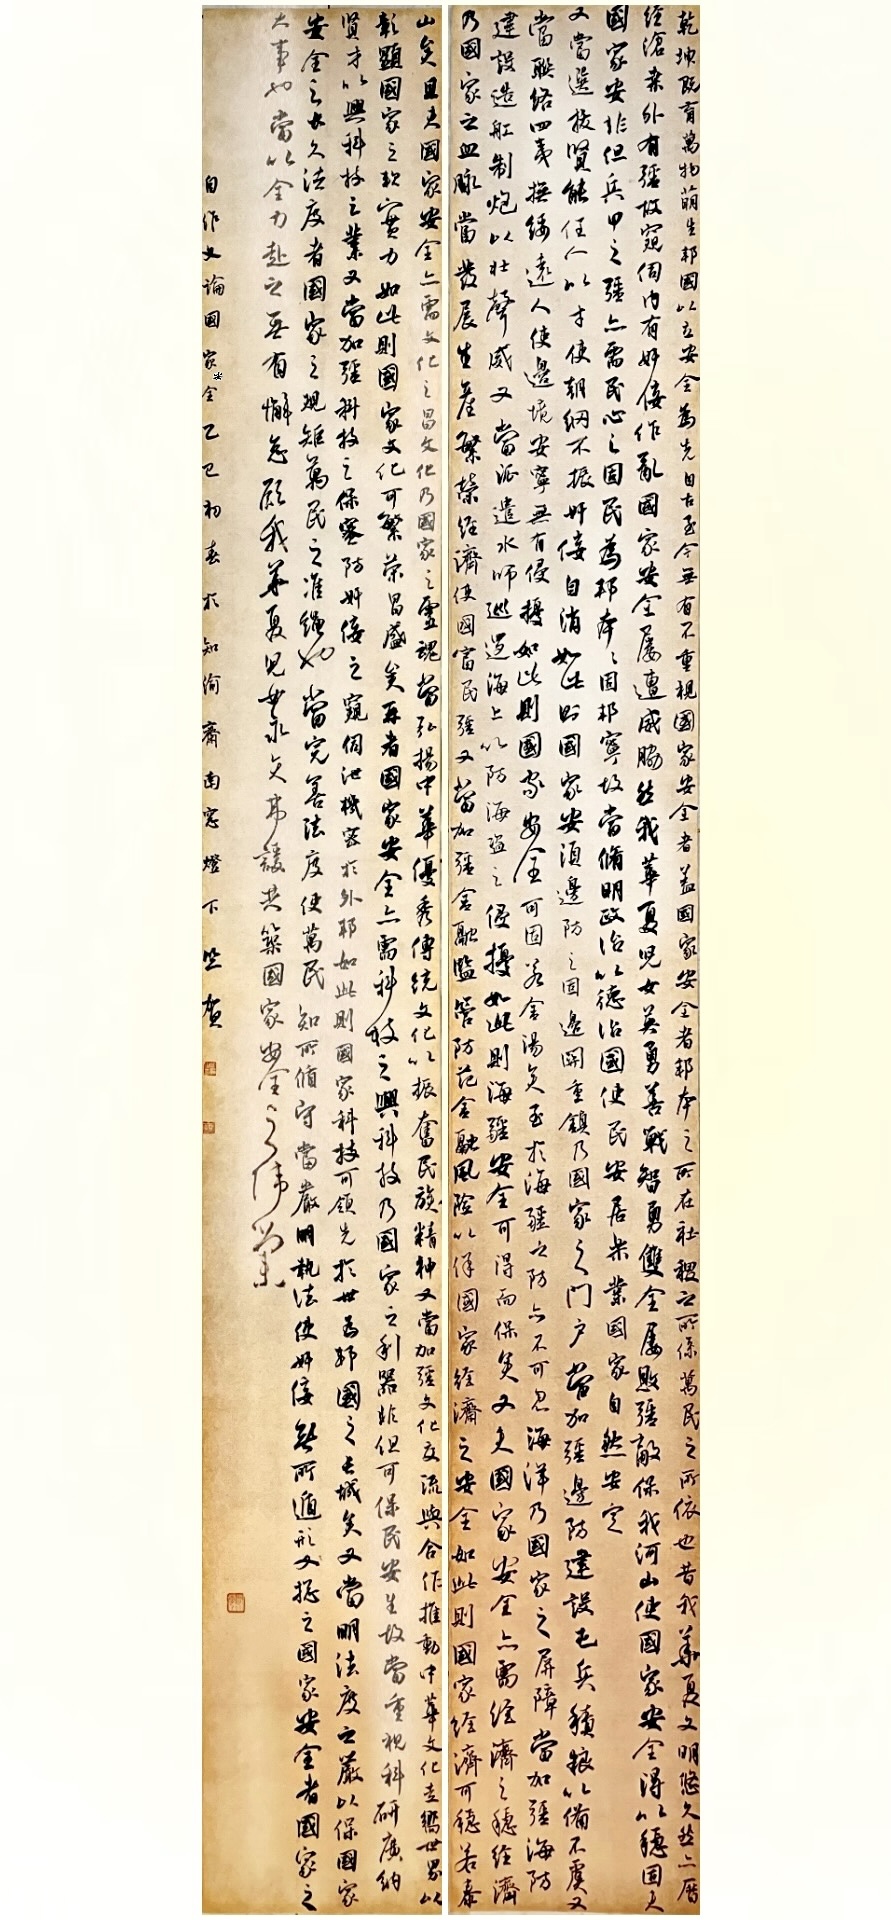 乾坤既育萬物萌生邦國以立安全為先自古至今無有不重視國家安全者蓋國家安全者邦本之所在社稷之所係萬民之所依也昔我華夏文明悠久然亦歷
經滄桑外有强敵窺伺内有奸佞作亂國家安全屢遭威脇然我華夏兒女英勇善戰智勇雙全屢敗强敵保我河山使國家安全得以穩固夫
國家安非但兵甲之强亦需民心之固民為邦本本固邦寧故當脩明政治以德治國使民安居樂業國家自然安定
又當選拔賢能任人以才使朝綱不振奸佞自消如此則國家安須邊防之固邊關重鎮乃國家之门户當加强邊防建設屯兵積粮以備不虞又
當聯絡四夷撫綏遠人使邊境安寧無有侵擾如此則國家安全可固若金湯矣至於海疆之防亦不可忽海洋乃國家之屏障當加强海防
建設造舡制炮以壯聲威又當派遣水师巡邏海上以防海盗之侵擾如此則海疆安全可得而保矣又夫國家安全亦需經濟之穩經濟
乃國家之血脉當發展生產繁榮經濟使國富民强又當加强金融監管防范金融風险以保國家經濟之安全如此則國家經濟可穩若泰
山矣且夫國家安全亦需文化之昌文化乃國家之靈魂當弘揚中華優秀傳統文化以振奮民族精神又當加强文化交流與合作推動中華文化走嚮世界以
彰顯國家之軟實力如此則國家文化可繁荣昌盛矣再者國家安全亦需科技之興科技乃國家之利器非但可保民安生故當重視科研廣納
賢才以興科技之業又當加强科技之保密防奸佞之窺伺泄機密於外邦如此則國家科技可領先於世為邦國之長城矣又當明法度之嚴以保國家
安全之永久法度者國家之規矩萬民之准繩也當完善法度使萬民知所脩守當嚴明執法使奸佞無所遁形又総之國家安全者國家之
大事也當以全力赴之無有懈怠願我華夏兒女永矢弗諼共築國家安全之偉業
自作文論國家*全乙巳初春於知渝齋南窓燈下 賀